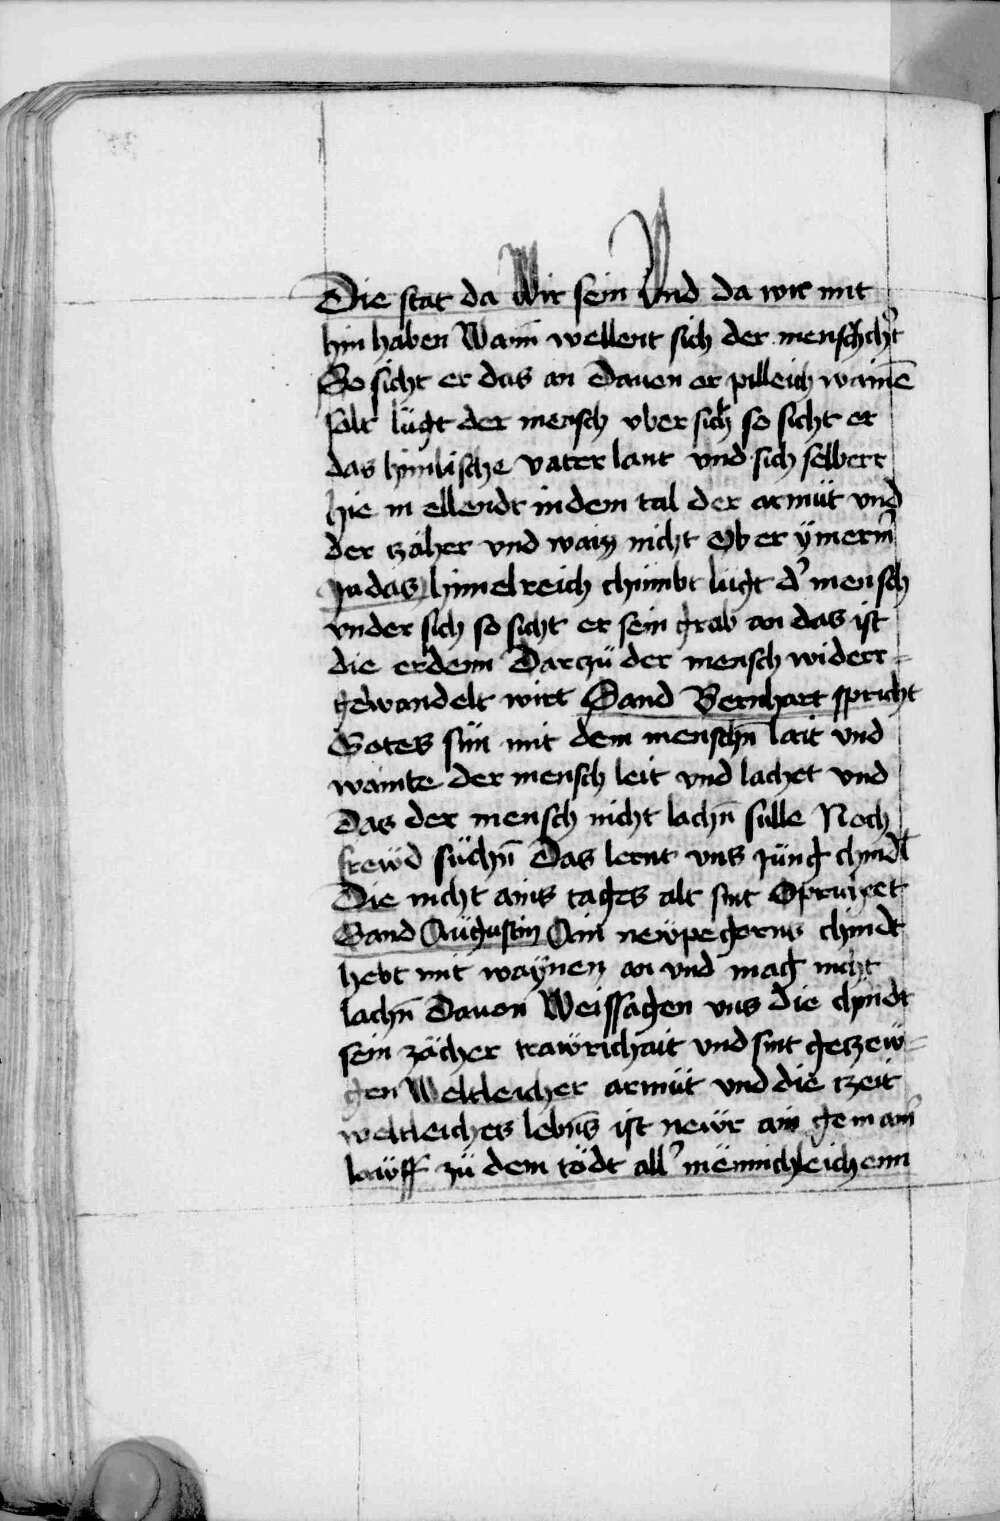 Die stat da Wir sein Vnd da wir mit
hin haben Wann wellent sich der mensch
So sicht er das an Dauon er pilleich wainē
solt lügt der mensch vber sich so sicht er
das himlische vater lant vnd sich selberr
hie in ellendt in dem tal der armüt vnd
der zäher vnd wais nicht Ob er ÿmerm̄
In das himelreich chümbt lügt d' mensch
vnder sich so sicht er sein grab an das ist
die erdenn Darczü der mensch widerr=
gewandelt wirt Sand Bernhart spricht
Gotes sün mit dem menschn̄ lait vnd
wainte der mensch leit vnd lachet vnd
Das der mensch nicht lachn̄ sülle Noch
frewd süchn̄ Das lernt vns jüng chindl
Die nicht ains tages alt sint Sprichet
Sand Augustin Ain newpegorns chindt
hebt mit waÿnen an vnd mag nicht
lachn̄ Dauon Weissagen vns die chindt
sein zächer trawrichait vnd sint geczew=
gen Weltleicher armüt vnd die czeit
weltleiches lebn̄s ist newr ain gemain'
lawff zü dem tödt all' männichleichenn